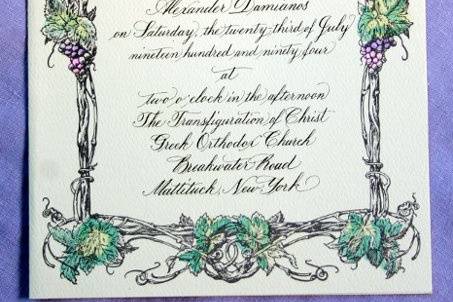 Alexander Damianos
on Saturday, the twenty-third of July
nineteen hundred and ninety four
at
two o'clock in the afternoon
The Transfiguration of Christ
Greek Orthodox Church
Breakwater Road
Mattituck, New York